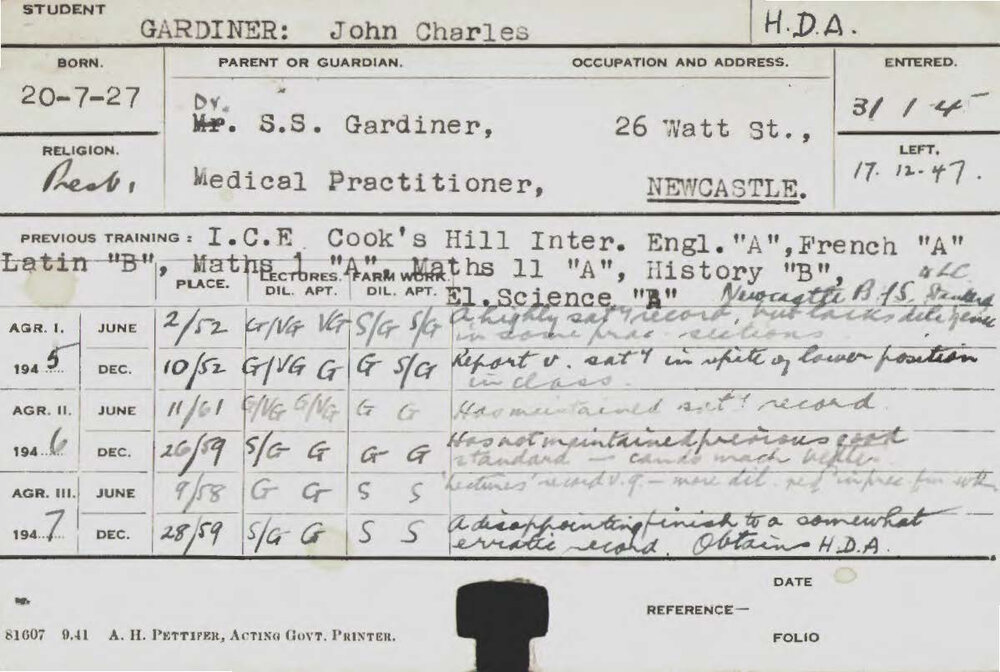 STUDENT
GARDINER: John Charles
H.D.A.
BORN.
PARENT OR GUARDIAN.
OCCUPATION AND ADDRESS.
ENTERED.
20-7-27
Dr.
Mr. S.S. Gardiner,
26 Watt St.,
31 1 45
RELIGION.
LEFT.
Presb.
Medical Practitioner,
NEWCASTLE.
17. 12. 47.
PREVIOUS TRAINING: I.C.E Cook's Hill Inter. Engl."A",French "A"
Latin "B", Maths 1 "A", Maths 11 "A", History "B",
El.Science "B" Newcastle B.H.S.
PLACE. LECTURES. FARM WORK.
DIL. APT. DIL. APT.
AGR. I. JUNE 2/52 G/VG VG S/G S/G A highly sat'y record, but lacks diligence
in some prac. sections
1945 DEC. 10/52 G/VG G G S/G Report v. sat'y in spite of lower position
in class.
AGR. II. JUNE 11/61 G/VG G/VG G G Has maintained sat'y record.
1946 DEC. 26/59 S/G G G G Has not maintained previous good
standard — can do much better
AGR. III. JUNE 9/58 G G S S 'Lectures' record v.g. — more dil. req' in prac. fm wk
1947 DEC. 28/59 S/G G S S A disappointing finish to a somewhat
erratic record. Obtains H.D.A.
DATE
REFERENCE—
81607 9.41 A. H. PETTIFER, ACTING GOVT. PRINTER.
FOLIO